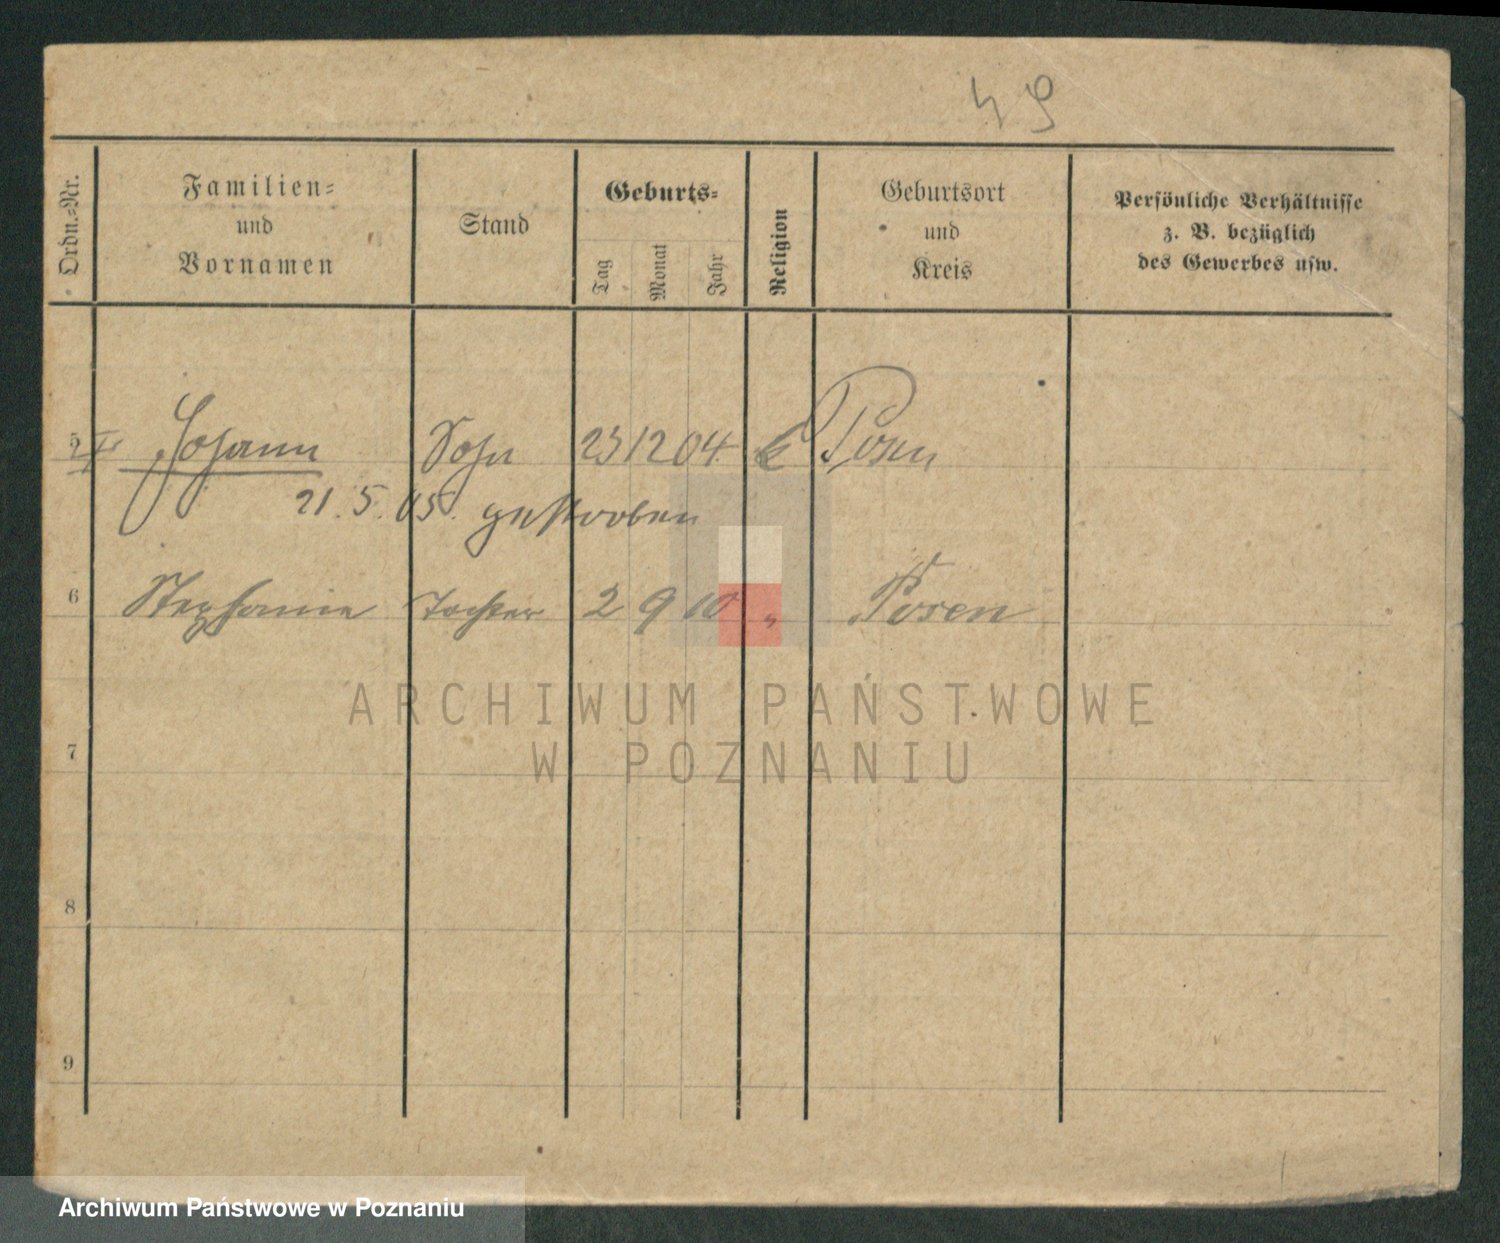 49
Ordn.-Nr. Familien- und Vornamen Stand Geburts- Tag Monat Jahr Religion Geburtsort und Kreis Persönliche Verhältnisse z. B. bezüglich des Gewerbes usw.
5 Johann Sohn 23 12 04 k Posen
21. 5. 05. gestorben
6 Stephanie Tochter 2 9 10 " Posen
ARCHIWUM PAŃSTWOWE
W POZNANIU
7
8
9
Archiwum Państwowe w Poznaniu